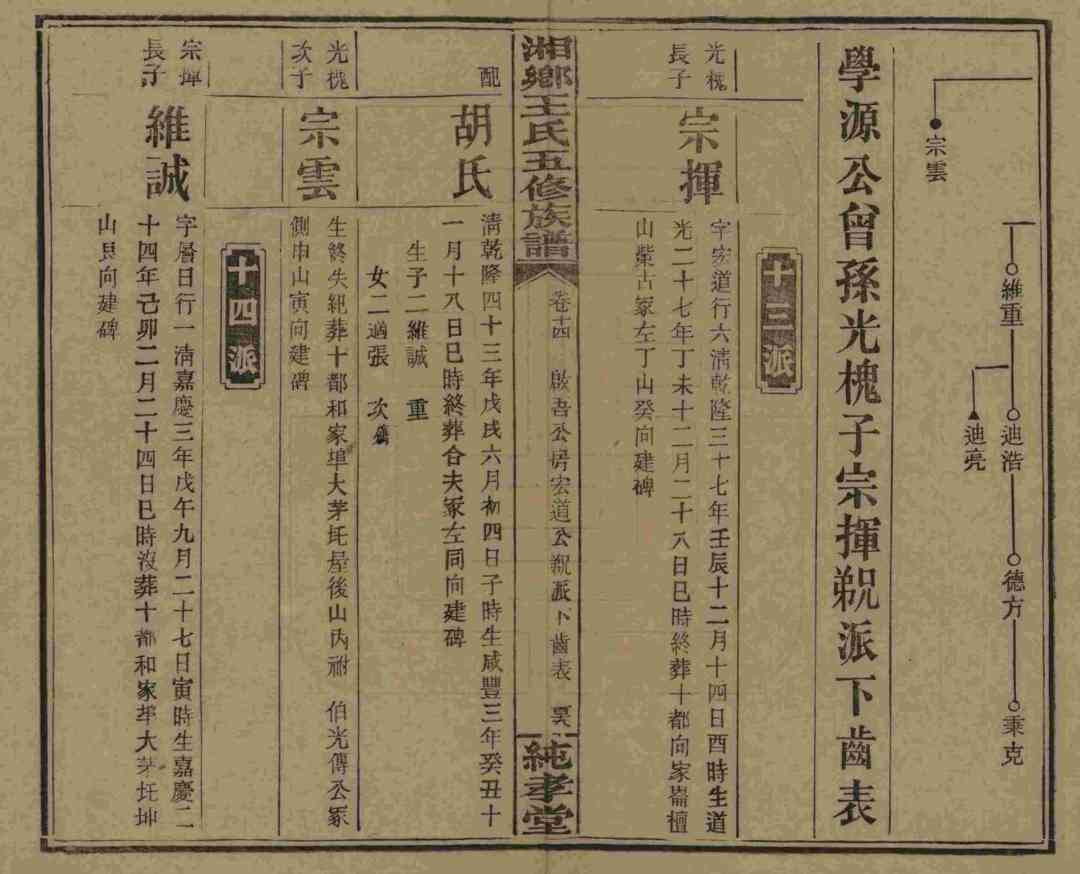 宗雲
維重
迪浩
迪亮
德方
秉克
學源公曾孫光槐子宗揮派下齒表
十三派
光槐長子
宗揮
字宏道行六淸乾隆三十七年壬辰十二月十四日酉時生道
光二十七年丁未十二月二十八日巳時終葬十都向家崙檀
山柴古冢左丁山癸向建碑
湘鄉王氏五修族譜
卷十四
啟吾公房宏道公派下齒表
純孝堂
配
胡氏
淸乾隆四十三年戊戌六月初四日子時生咸豐三年癸丑十
一月十八日巳時終葬合夫冢左同向建碑
生子二維誠 重
女二適張 次
光槐次子
宗雲
生終失紀葬十都和家埠大茅坵屋後山內祔 伯光傳公冢
側申山寅向建碑
十四派
宗揮長子
維誠
字層日行一淸嘉慶三年戊午九月二十七日寅時生嘉慶二
十四年己卯二月二十四日巳時沒葬十都和家埠大茅坵坤
山艮向建碑